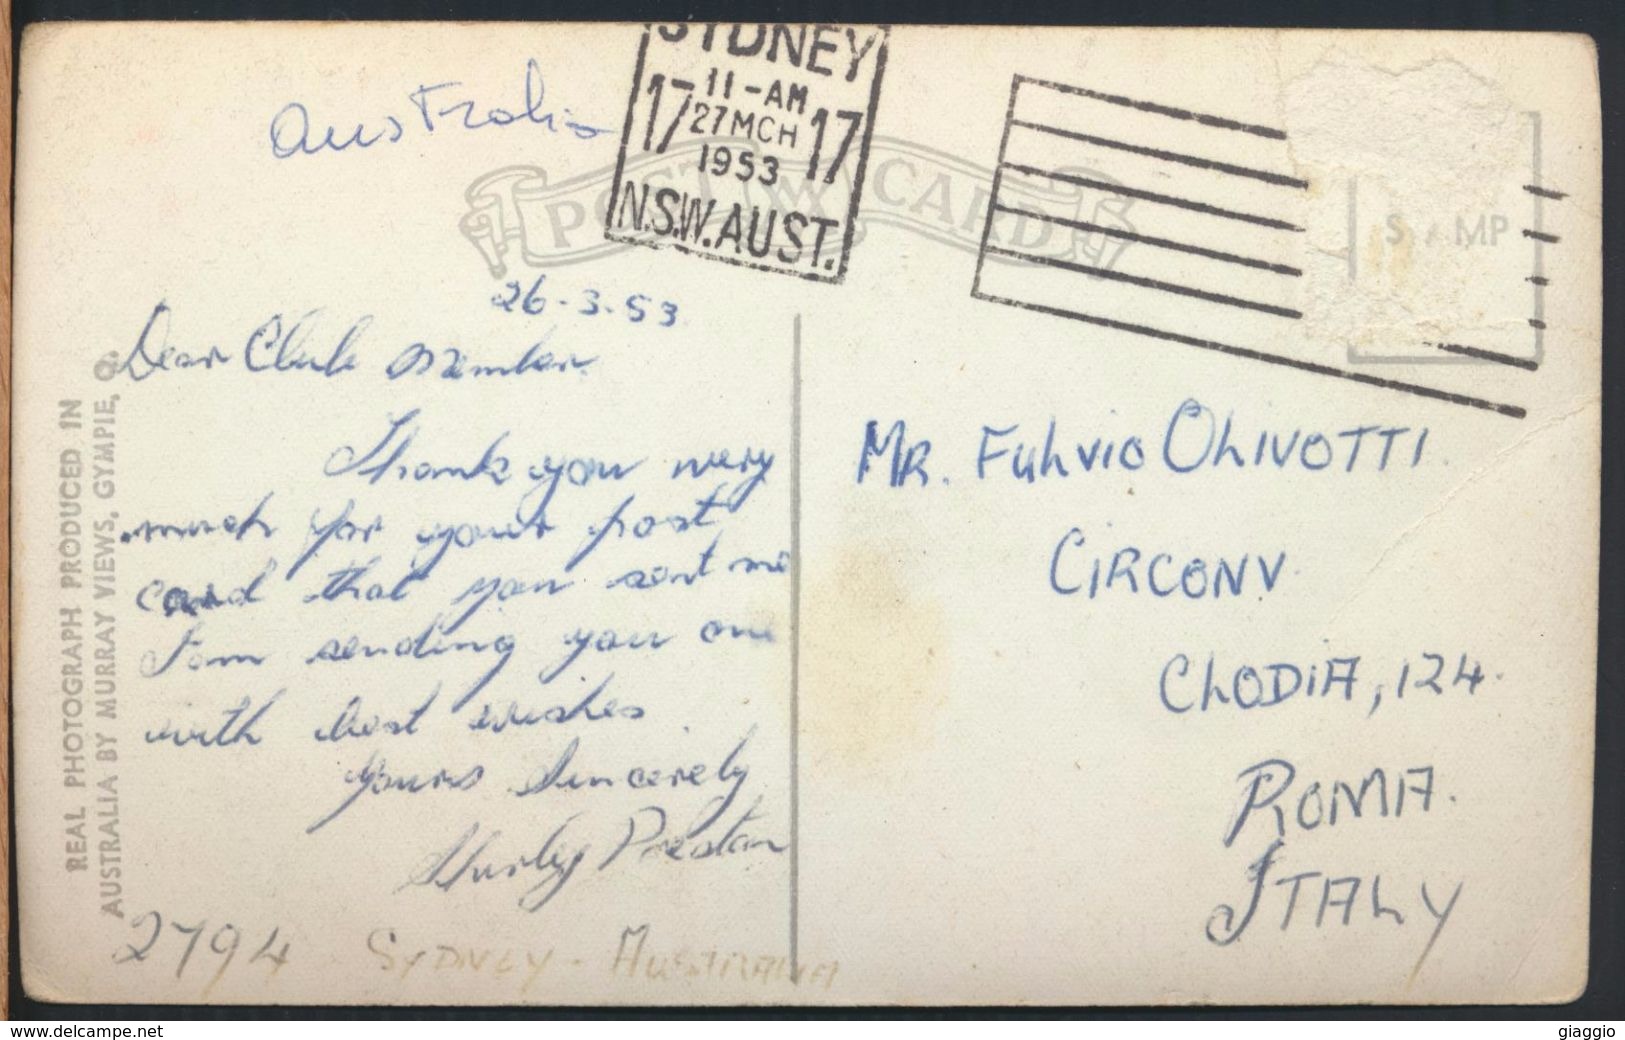 Australia
SYDNEY
11-AM
17 27MCH 17
1953
N.S.W. AUST.
POST CARD
STAMP
26-3-53
Dear Club Member
Thank you very
much for your post
card that you sent me
I am sending you one
with best wishes
Yours Sincerely
Preston
MR. FULVIO OLIVOTTI.
CIRCONV.
CLODIA, 124.
ROMA.
ITALY
REAL PHOTOGRAPH PRODUCED IN
AUSTRALIA BY MURRAY VIEWS, GYMPIE, Q.
2794 SYDNEY - AUSTRALIA
www.delcampe.net
giaggio